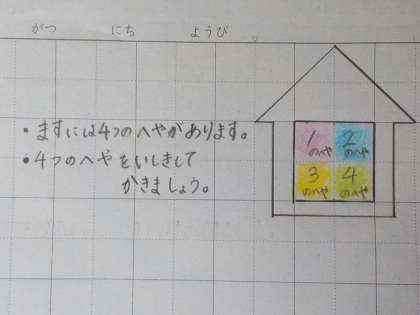 がつ にち ようび
・ますには4つのへやがあります。
・4つのへやをいしきして
かきましょう。
1のへや
2のへや
3のへや
4のへや